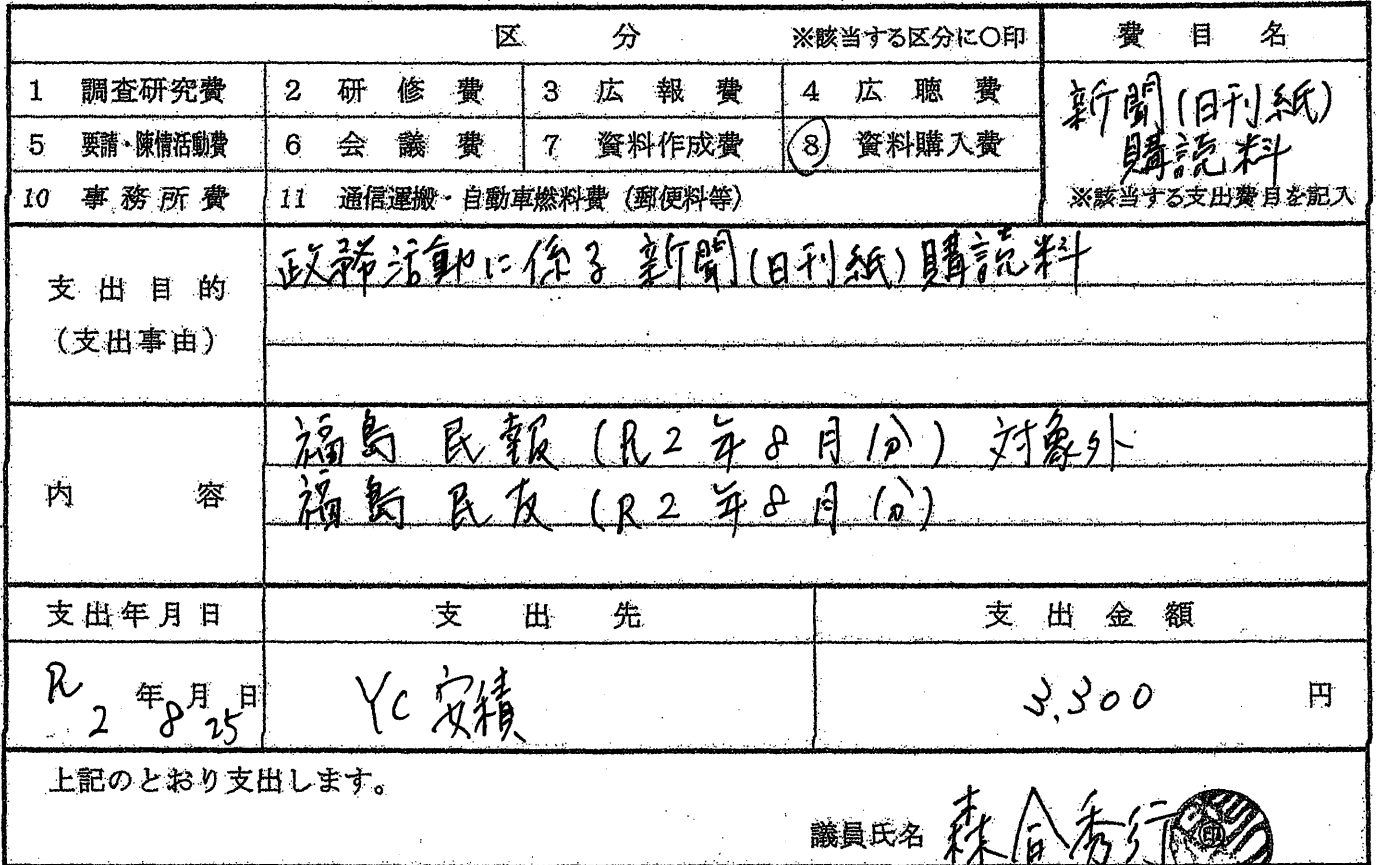 区 分 ※該当する区分に○印
費 目 名
1 調査研究費 2 研 修 費 3 広 報 費 4 広 聴 費
5 要請・陳情活動費 6 会 議 費 7 資料作成費 8 資料購入費
10 事 務 所 費 11 通信運搬・自動車燃料費（郵便料等）
新聞(日刊紙)
購読料
※該当する支出費目を記入
支 出 目 的
（支出事由）
政務活動に係る 新聞(日刊紙)購読料
内 容
福島 民報 (R2 年 8 月分) 対象外
福島 民友 (R2 年 8 月分)
支出年月日 支 出 先 支 出 金 額
R2年8月25日 YC 安積 3,300 円
上記のとおり支出します。
議員氏名 森合秀行 印